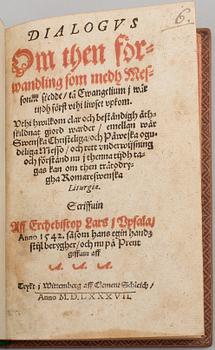 6.
DIALOGVS
Om then för-
wandling som medh Mes-
sonne skedde / tå Ewangelium j wår
tijdh först vthi liwset vpkom.
Vthi hwilkom clar och bestándigh åth-
skilnat giord warder / emellan wår
Swenska Christeliga / och Påweska ogu-
deliga Messo / och rett vnderwijsning
och förstånd nu j thenna tijdh ta-
gas kan om then trätodryg-
gha Romareswenska
Liturgia.
Scriffuin
Aff Erchebiscop Lars j Vpsala /
Anno 1542. såsom hans eghin handz
stijl betygher / och nu på Prent
giffuin aff
Tryckt j Wittemberg aff Clement Schleich /
Anno M.D.LXXXVII.